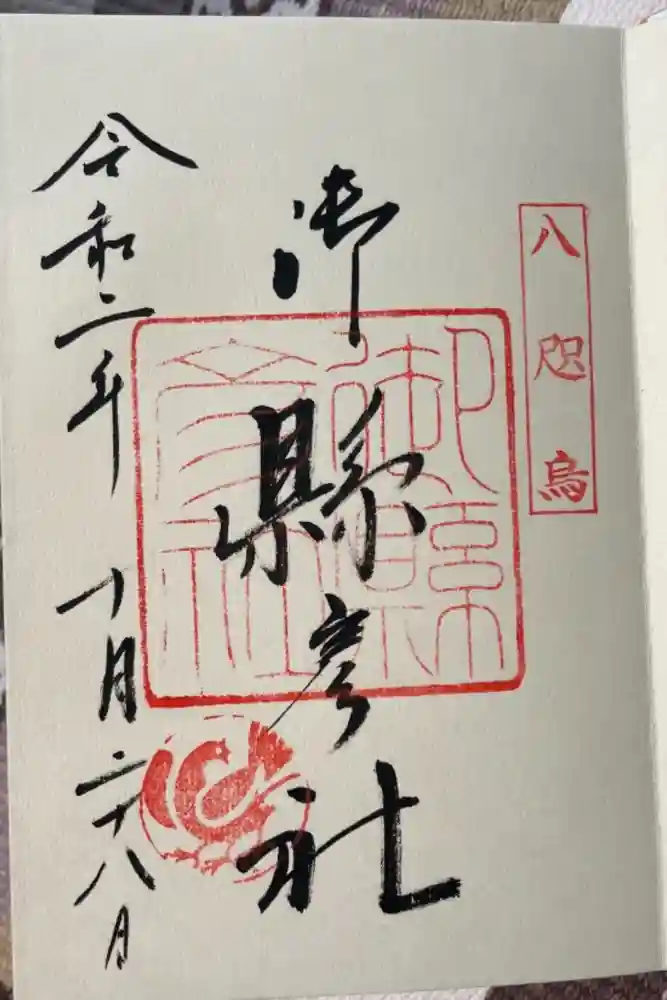 八咫烏
御縣彦社
御縣彦社
令和二年 十月二十八日